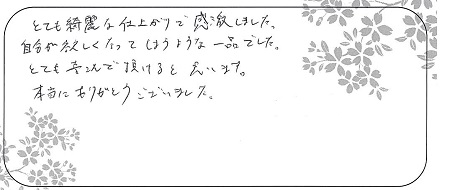 とても綺麗な仕上がりで感激しました。
自分が欲しくなってしまうような一品でした。
とても喜んで頂けると思います。
本当にありがとうございました。